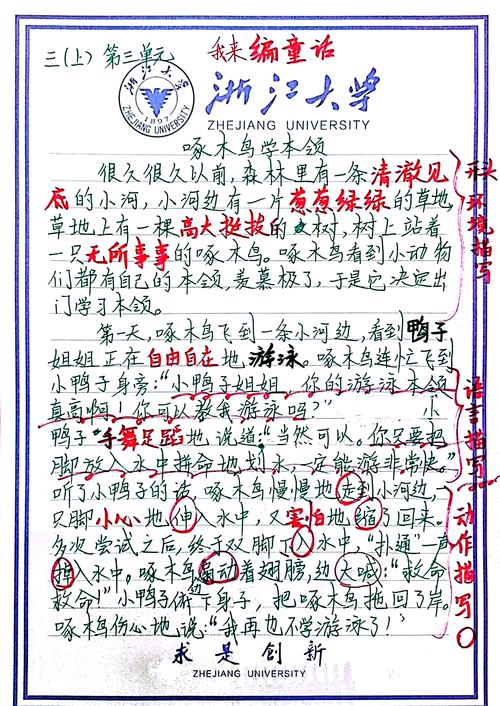 三(上) 第三单元 我来编童话
浙江大学
ZHEJIANG UNIVERSITY
1897
啄木鸟学本领
很久很久以前,森林里有一条清澈见
底的小河,小河边有一片葱葱绿绿的草地,
草地上有一棵高大挺拔的大树,树上站着
一只无所事事的啄木鸟。啄木鸟看到小动物
们都有自己的本领,羡慕极了,于是它决定出
门学习本领。
开头
环境描写
第一天,啄木鸟飞到一条小河边,看到鸭子
姐姐正在自由自在地游泳。啄木鸟连忙飞到
小鸭子身旁:“小鸭子姐姐,你的游泳本领
真高啊!你可以教我游泳吗?” 小
鸭子“手舞足蹈地说道:“当然可以。你只要把
脚放入水中拼命地划水,一定能游非常快。”
语言描写
听了小鸭子的话,啄木鸟慢慢地走到小河边,
只脚小心地伸入水中,又害怕地缩了回来。
多次尝试之后,终于双脚入水中,“扑通”一声
掉入水中。啄木鸟扇动着翅膀,边大喊:“救命
救命!”小鸭子俯下身子,把啄木鸟拖回了岸。
啄木鸟伤心地说:“我再也不学游泳了!”
动作描写
求是创新
ZHEJIANG UNIVERSITY